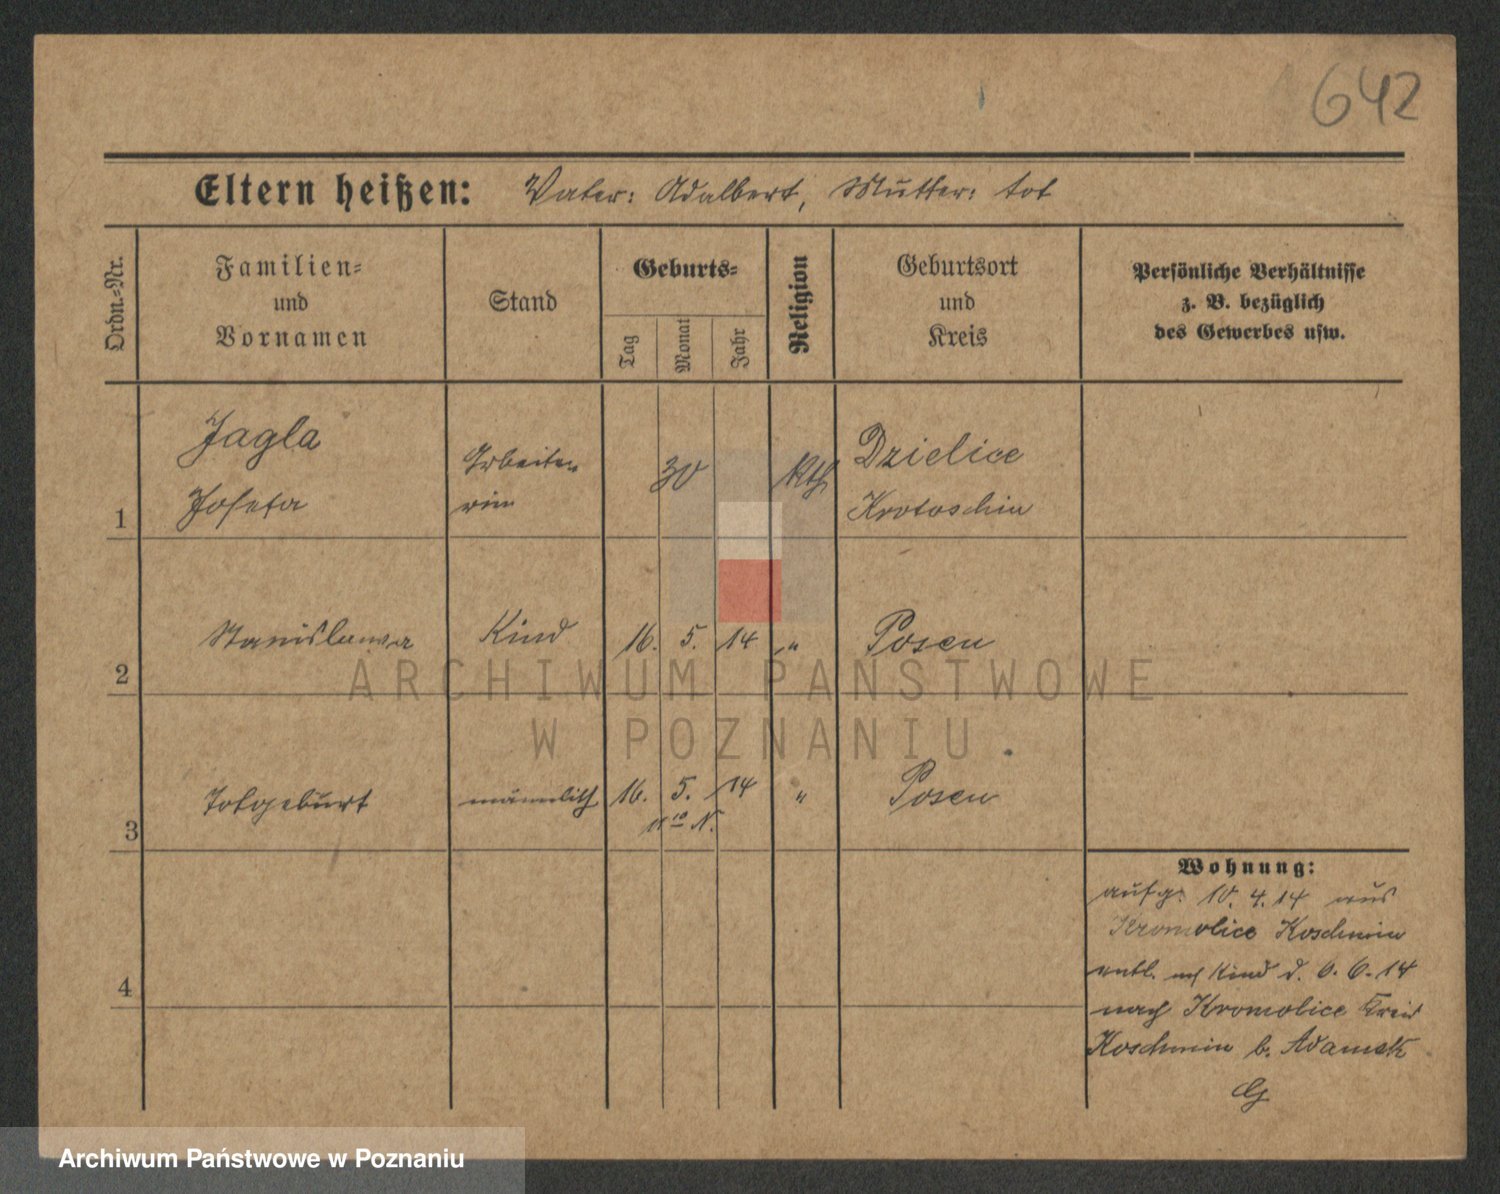 642
Eltern heißen: Vater: Adalbert, Mutter: tot
Ordn.=Nr.
Familien=
und
Vornamen
Stand
Geburts=
Tag
Monat
Jahr
Religion
Geburtsort
und
Kreis
Persönliche Verhältnisse
z. B. bezüglich
des Gewerbes usw.
1
Jagla
Josefa
Arbeite
rin
30
Kth
Dzielice
Krotoschin
2
Stanislawa
Kind
16. 5. 14
"
Posen
ARCHIWUM PAŃSTWOWE
W POZNANIU
3
Totgeburt
männlich
16. 5. 14
11 10 N.
"
Posen
4
Wohnung:
aufg. 10. 4. 14 aus
Kromolice Koschmin
entl. Kind d. 6. 6. 14
nach Kromolice Kreis
Koschmin b. Adamek
Archiwum Państwowe w Poznaniu